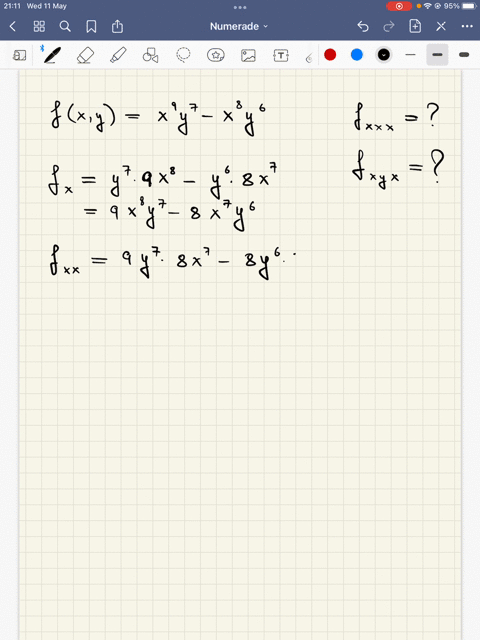 21:11 Wed 11 May
95%
Numerade
T
f(x,y) = x⁹y⁷ − x⁸y⁶
f_xxx = ?
f_xyx = ?
f_x = y⁷· 9x⁸ − y⁶· 8x⁷
= 9x⁸y⁷ − 8x⁷y⁶
f_xx = 9y⁷· 8x⁷ − 8y⁶·